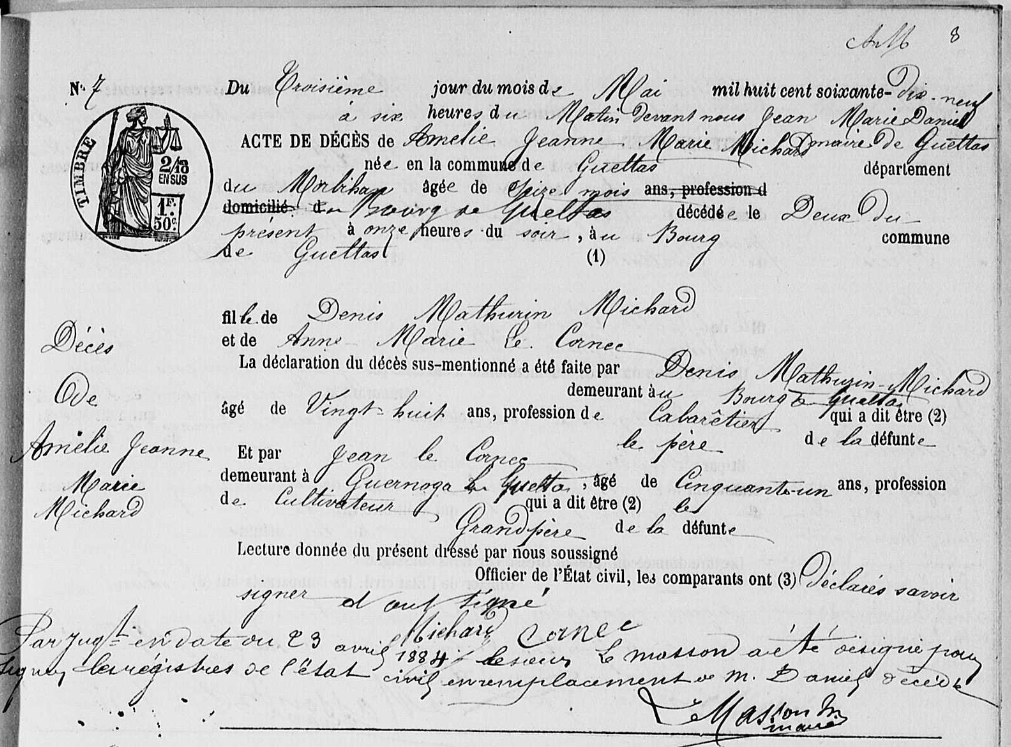 8
N° 7 Du Troisième jour du mois de Mai mil huit cent soixante-dix-neuf
à six heures du Matin devant nous Jean Marie Daniel
ACTE DE DÉCÈS de Amélie Jeanne Marie Michard maire de Gueltas
née en la commune de Gueltas département
du Morbihan âgée de Seize mois ans, profession d
domicilié d au Bourg de Gueltas décédée le Deux du
présent à onze heures du soir, au Bourg commune
de Gueltas (1)
TIMBRE
2/10
EN SUS
1F.
50c.
fille de Denis Mathurin Michard
et de Anne Marie Le Cornec
La déclaration du décès sus-mentionné a été faite par Denis Mathurin Michard
demeurant au Bourg de Gueltas
âgé de Vingt-huit ans, profession de Cabarêtier qui a dit être (2)
le père de la défunte
Et par Jean le Cornec
demeurant à Guernoga en Gueltas, âgé de Cinquante-un ans, profession
de Cultivateur qui a dit être (2) le
Grandpère de la défunte
Lecture donnée du présent dressé par nous soussigné
Officier de l'État civil, les comparants ont (3) déclarés savoir
signer et ont signé
Michard Cornec
Décès
De
Amélie Jeanne
Marie
Michard
Par jugt en date du 23 avril 1884 le sieur Le masson a été désigné pour
signer les registres de l'état civil en remplacement de m. Daniel décédé
Le Masson
maire